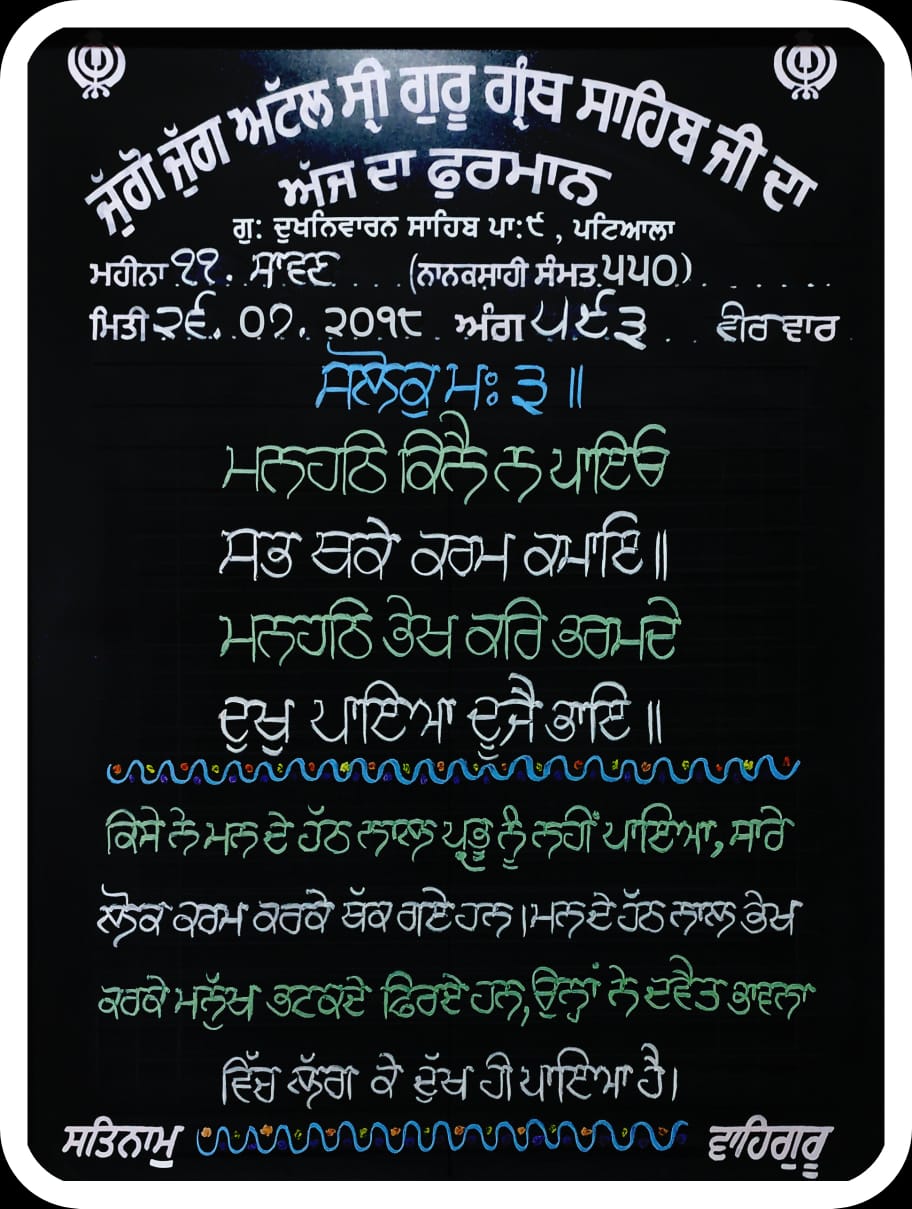 ਜੁੱਗੋ ਜੁੱਗ ਅਟੱਲ ਸ੍ਰੀ ਗੁਰੂ ਗ੍ਰੰਥ ਸਾਹਿਬ ਜੀ ਦਾ
ਅੱਜ ਦਾ ਫ਼ੁਰਮਾਨ
ਗੁ: ਦੁਖਨਿਵਾਰਨ ਸਾਹਿਬ ਪਾ:੯, ਪਟਿਆਲਾ
ਮਹੀਨਾ ੧੧. ਸਾਵਣ (ਨਾਨਕਸ਼ਾਹੀ ਸੰਮਤ ੫੫੦)
ਮਿਤੀ ੨੬. ੦੭. ੨੦੧੮ ਅੰਗ ੫੯੩ ਵੀਰਵਾਰ
ਸਲੋਕੁ ਮਃ ੩ ॥
ਮਨਹਠਿ ਕਿਨੈ ਨ ਪਾਇਓ
ਸਭ ਥਕੇ ਕਰਮ ਕਮਾਇ॥
ਮਨਹਠਿ ਭੇਖ ਕਰਿ ਭਰਮਦੇ
ਦੁਖੁ ਪਾਇਆ ਦੂਜੈ ਭਾਇ॥
ਕਿਸੇ ਨੇ ਮਨ ਦੇ ਹੱਠ ਨਾਲ ਪ੍ਰਭੂ ਨੂੰ ਨਹੀਂ ਪਾਇਆ, ਸਾਰੇ
ਲੋਕ ਕਰਮ ਕਰਕੇ ਥੱਕ ਗਏ ਹਨ। ਮਨ ਦੇ ਹੱਠ ਨਾਲ ਭੇਖ
ਕਰਕੇ ਮਨੁੱਖ ਭਟਕਦੇ ਫਿਰਦੇ ਹਨ, ਉਨ੍ਹਾਂ ਨੇ ਦਵੈਤ ਭਾਵਨਾ
ਵਿੱਚ ਲੱਗ ਕੇ ਦੁੱਖ ਹੀ ਪਾਇਆ ਹੈ।
ਸਤਿਨਾਮੁ ਵਾਹਿਗੁਰੂ